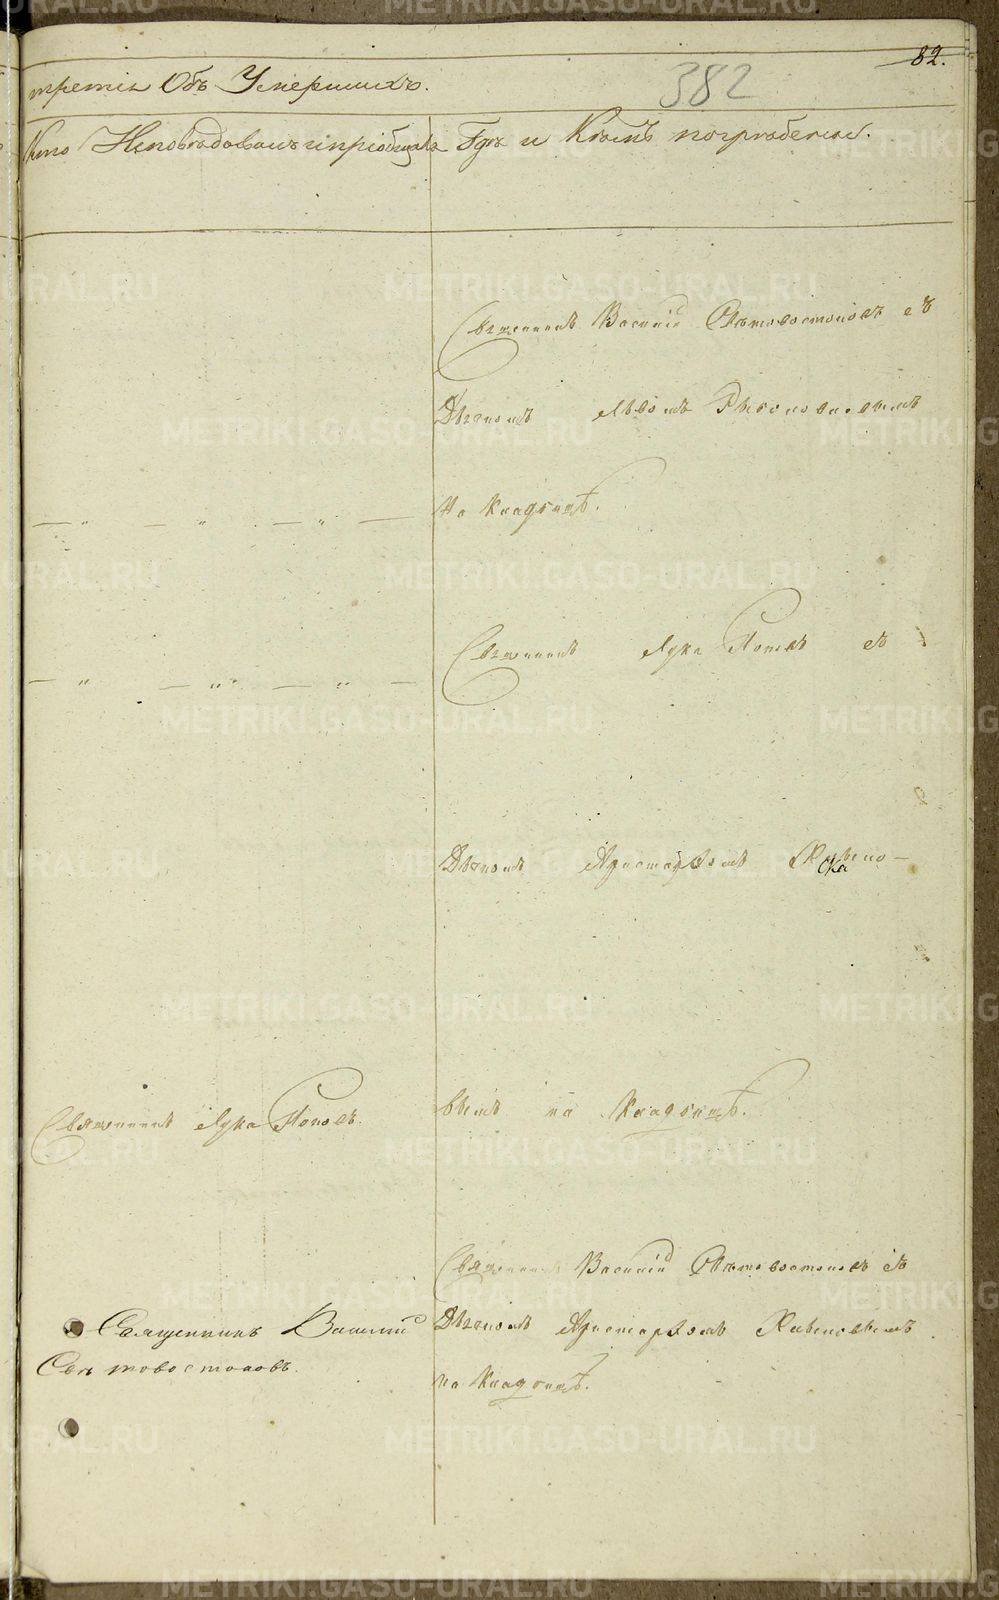 82.
382
третія Объ Умершихъ.
Кто Исповѣдовалъ и пріобщалъ
Гдѣ и Кѣмъ погребены.
Священникъ Василій Свѣтовостоковъ съ
Діакономъ Львомъ
На Кладбищѣ.
Священникъ Лука Поповъ съ
Діакономъ Аристархомъ
Священникъ Лука Поповъ.
вымъ на Кладбищѣ.
Священникъ Василій Свѣтовостоковъ съ
Священникъ Василій
Діакономъ Аристархомъ
Свѣтовостоковъ.
на Кладбищѣ.
METRIKI.GASO-URAL.RU